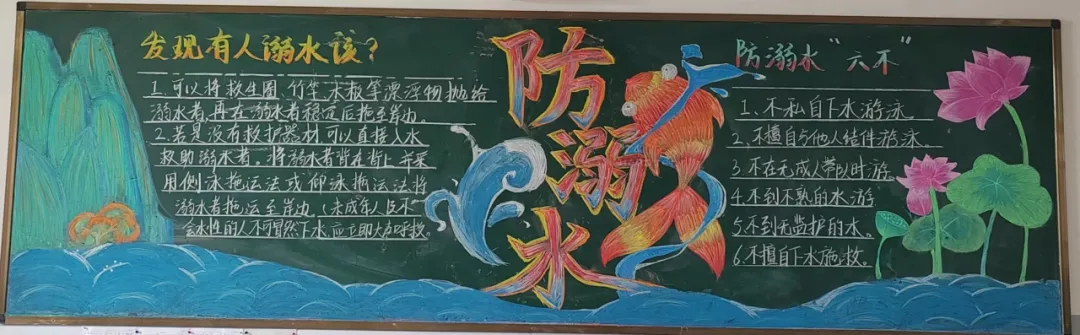 发现有人溺水该？
1.可以将救生圈、竹竿、木板等漂浮物抛给
溺水者,再在溺水者稳定后拖至岸边。
2.若是没有救护器材可以直接入水
救助溺水者。将溺水者背在背上并采
用侧泳拖运法或仰泳拖运法将
溺水者拖运至岸边（未成年人及不
会水性的人不可冒然下水应立即大声呼救。
防溺水
防溺水“六不”
1、不私自下水游泳。
2.不擅自与他人结伴游泳。
3.不在无成人带队时游
4.不到不熟的水游
5.不到无监护的水。
6.不擅自下水施救。